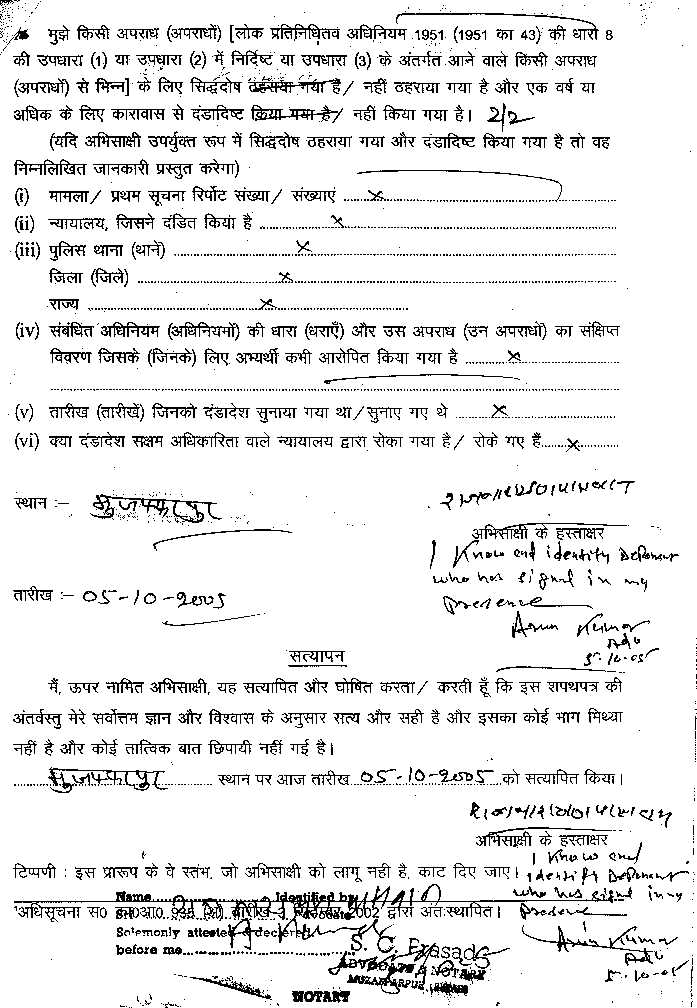 मुझे किसी अपराध (अपराधों) [लोक प्रतिनिधितव अधिनियम 1951 (1951 का 43) की धारा 8
की उपधारा (1) या उपधारा (2) में निर्दिष्ट या उपधारा (3) के अंतर्गत आने वाले किसी अपराध
(अपराधों) से भिन्न] के लिए सिद्धदोष ठहराया गया है / नहीं ठहराया गया है और एक वर्ष या
अधिक के लिए कारावास से दंडादिष्ट किया गया है / नहीं किया गया है।
(यदि अभिसाक्षी उपर्युक्त रूप में सिद्धदोष ठहराया गया और दंडादिष्ट किया गया है तो वह
निम्नलिखित जानकारी प्रस्तुत करेगा)
(i) मामला / प्रथम सूचना रिर्पोट संख्या / संख्याएं ......x......
(ii) न्यायालय, जिसने दंडित किया है ......x......
(iii) पुलिस थाना (थाने) ......x......
जिला (जिले) ......x......
राज्य ......x......
(iv) संबंधित अधिनियम (अधिनियमों) की धारा (धराएँ) और उस अपराध (उन अपराधों) का संक्षिप्त
विवरण जिसके (जिनके) लिए अभ्यर्थी कभी आरोपित किया गया है ......x......
(v) तारीख (तारीखें) जिनको दंडादेश सुनाया गया था / सुनाए गए थे ......x......
(vi) क्या दंडादेश सक्षम अधिकारिता वाले न्यायालय द्वारा रोका गया है / रोके गए हैं......x......
स्थान :- मुजफ्फरपुर
अभिसाक्षी के हस्ताक्षर
I Know and identify Deponent
who has signed in my
presence
तारीख :- 05-10-2005
Arun Kumar
Adv
5-10-05
सत्यापन
मैं, ऊपर नामित अभिसाक्षी, यह सत्यापित और घोषित करता / करती हूँ कि इस शपथपत्र की
अंतर्वस्तु मेरे सर्वोत्तम ज्ञान और विश्वास के अनुसार सत्य और सही है और इसका कोई भाग मिथ्या
नहीं है और कोई तात्विक बात छिपायी नहीं गई है।
मुजफ्फरपुर स्थान पर आज तारीख 05-10-2005 को सत्यापित किया।
अभिसाक्षी के हस्ताक्षर
टिप्पणी : इस प्रारूप के वे स्तंभ, जो अभिसाक्षी को लागू नही है, काट दिए जाए।
I Know and
identify Deponent
who has signed in my
presence
Name Identified by
अधिसूचना स0 2002 द्वारा अंतःस्थापित।
Solemonly attested & declared
before me
Arun Kumar
Adv
5-10-05
S. C. Prasad
ADVOCATE & NOTARY
NOTARY